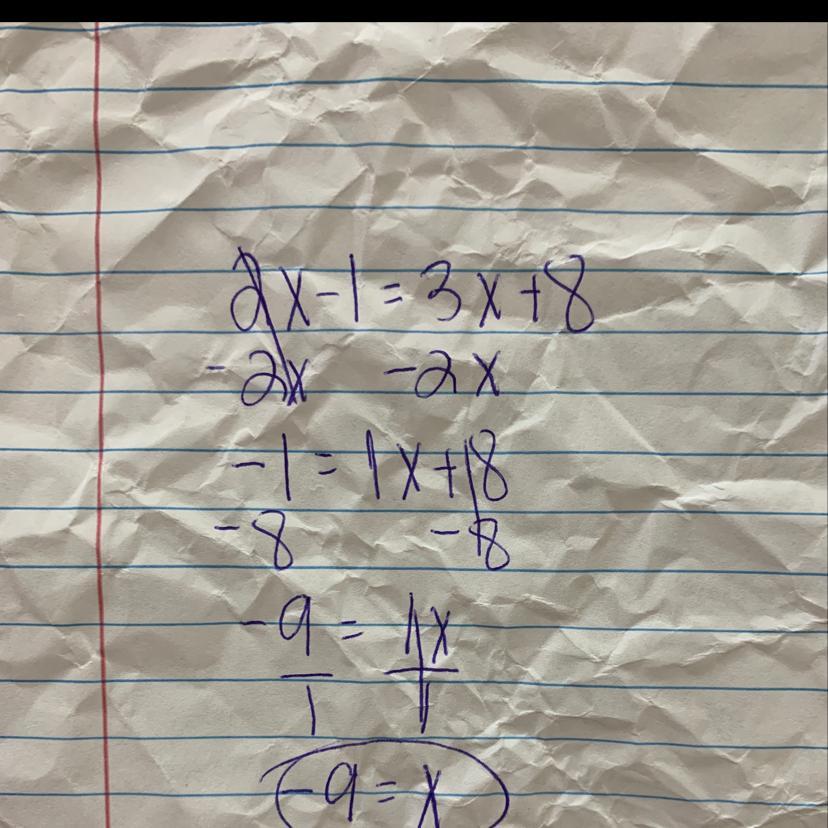 2x-1=3x+8
-2x -2x
-1=1x+8
-8 -8
-9=1x
1 1
-9=x